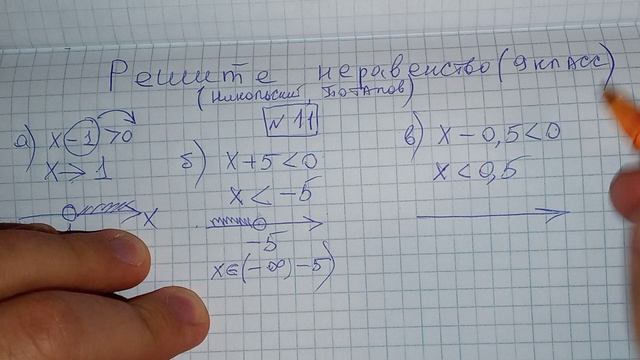 Решите неравенство (9 класс)
(Никольский, Потапов)
№ 11
а) x - 1 > 0
x > 1
x
б) x + 5 < 0
x < -5
-5
x ∈ (-∞) -5)
в) x - 0,5 < 0
x < 0,5